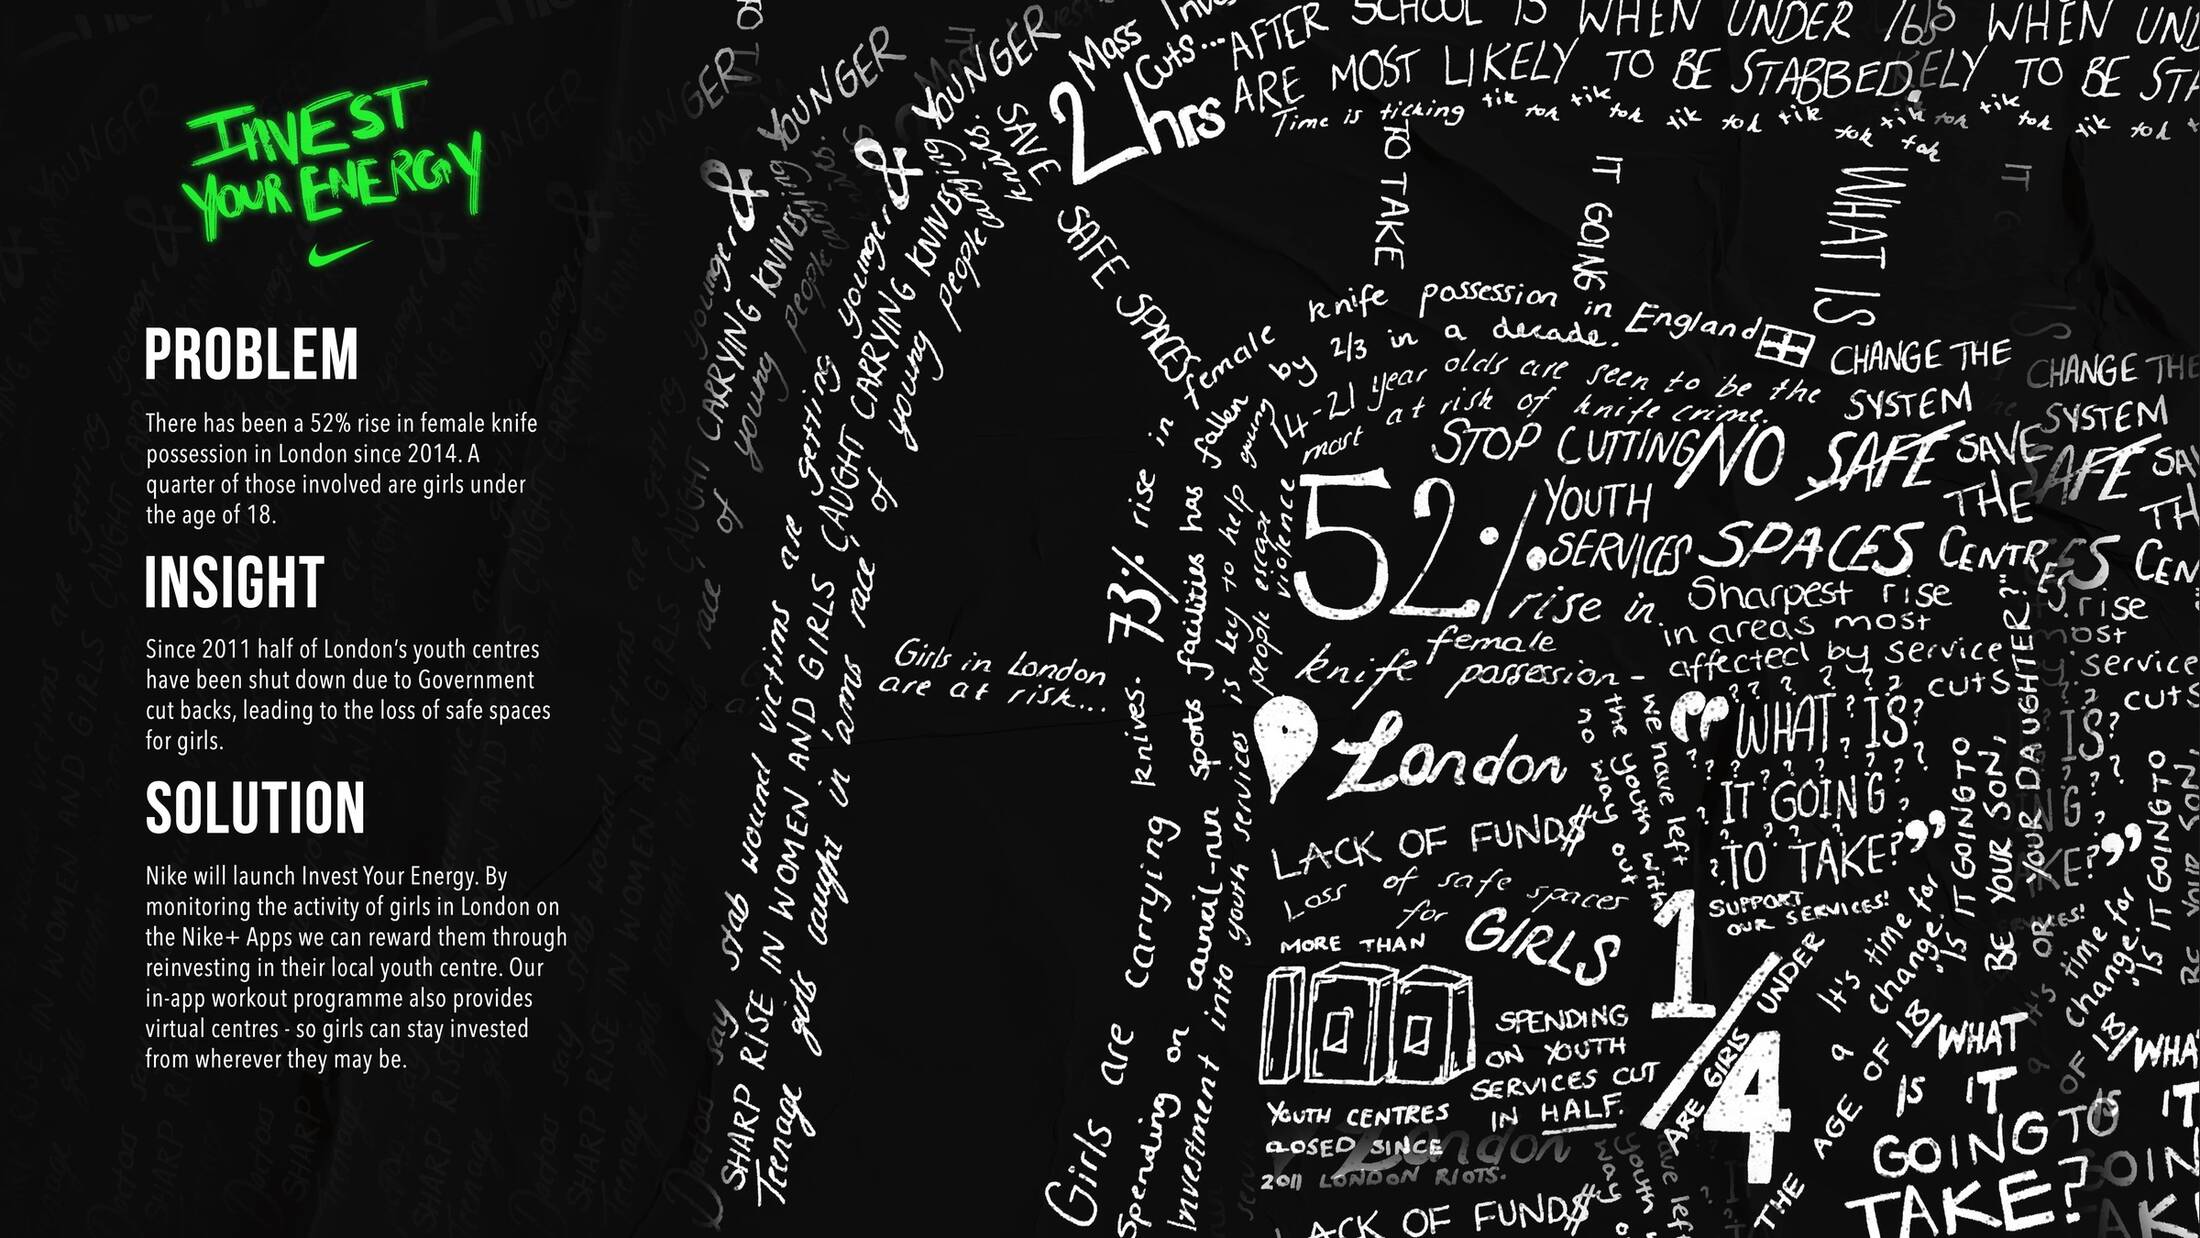 INVEST
YOUR ENERGY
PROBLEM
There has been a 52% rise in female knife
possession in London since 2014. A
quarter of those involved are girls under
the age of 18.
INSIGHT
Since 2011 half of London's youth centres
have been shut down due to Government
cut backs, leading to the loss of safe spaces
for girls.
SOLUTION
Nike will launch Invest Your Energy. By
monitoring the activity of girls in London on
the Nike+ Apps we can reward them through
reinvesting in their local youth centre. Our
in-app workout programme also provides
virtual centres - so girls can stay invested
from wherever they may be.
YOUNGER
YOUNGER
& younger
& younger
CARRYING KNIVES
young people
say stab wound victims are getting
SHARP RISE IN WOMEN AND GIRLS CAUGHT CARRYING KNIVES
Tenage girls caught in 'arms race' of young people carrying knives.
SAVE
SAFE SPACES
Mass
Cuts...
2hrs
AFTER SCHOOL IS WHEN UNDER 16s
ARE MOST LIKELY TO BE STABBED.
Time is ticking tik tok tik tok tik tok tik tok tik tok
TO TAKE
IT GOING
WHAT IS
Girls in London
are at risk...
Girls are carrying knives. 73% rise in female
knife possession in England
Spending on council-run sports facilities has fallen
by 2/3 in a decade.
Investment into youth services is key to help young
people escape violence
14-21 year olds are seen to be the
most at risk of knife crime.
CHANGE THE
SYSTEM
STOP CUTTING
YOUTH
SERVICES
NO SAFE
SPACES
SAVE
THE
CENTRES
52%
rise in
female
knife possession-
London
Sharpest rise
in areas most
affected by service
cuts
we have left
the youth with
no way out
"WHAT IS
IT GOING
TO TAKE?"
IS IT GOING TO
BE YOUR SON,
OR YOUR DAUGHTER?"
LACK OF FUND$
Loss of safe spaces
for GIRLS
SUPPORT
OUR SERVICES!
It's time for
change.
MORE THAN
100
YOUTH CENTRES
CLOSED SINCE
2011 LONDON RIOTS.
SPENDING
ON YOUTH
SERVICES CUT
IN HALF.
1/4
ARE GIRLS UNDER
THE AGE OF 18
WHAT
IS IT
GOING TO
TAKE?
LACK OF FUND$